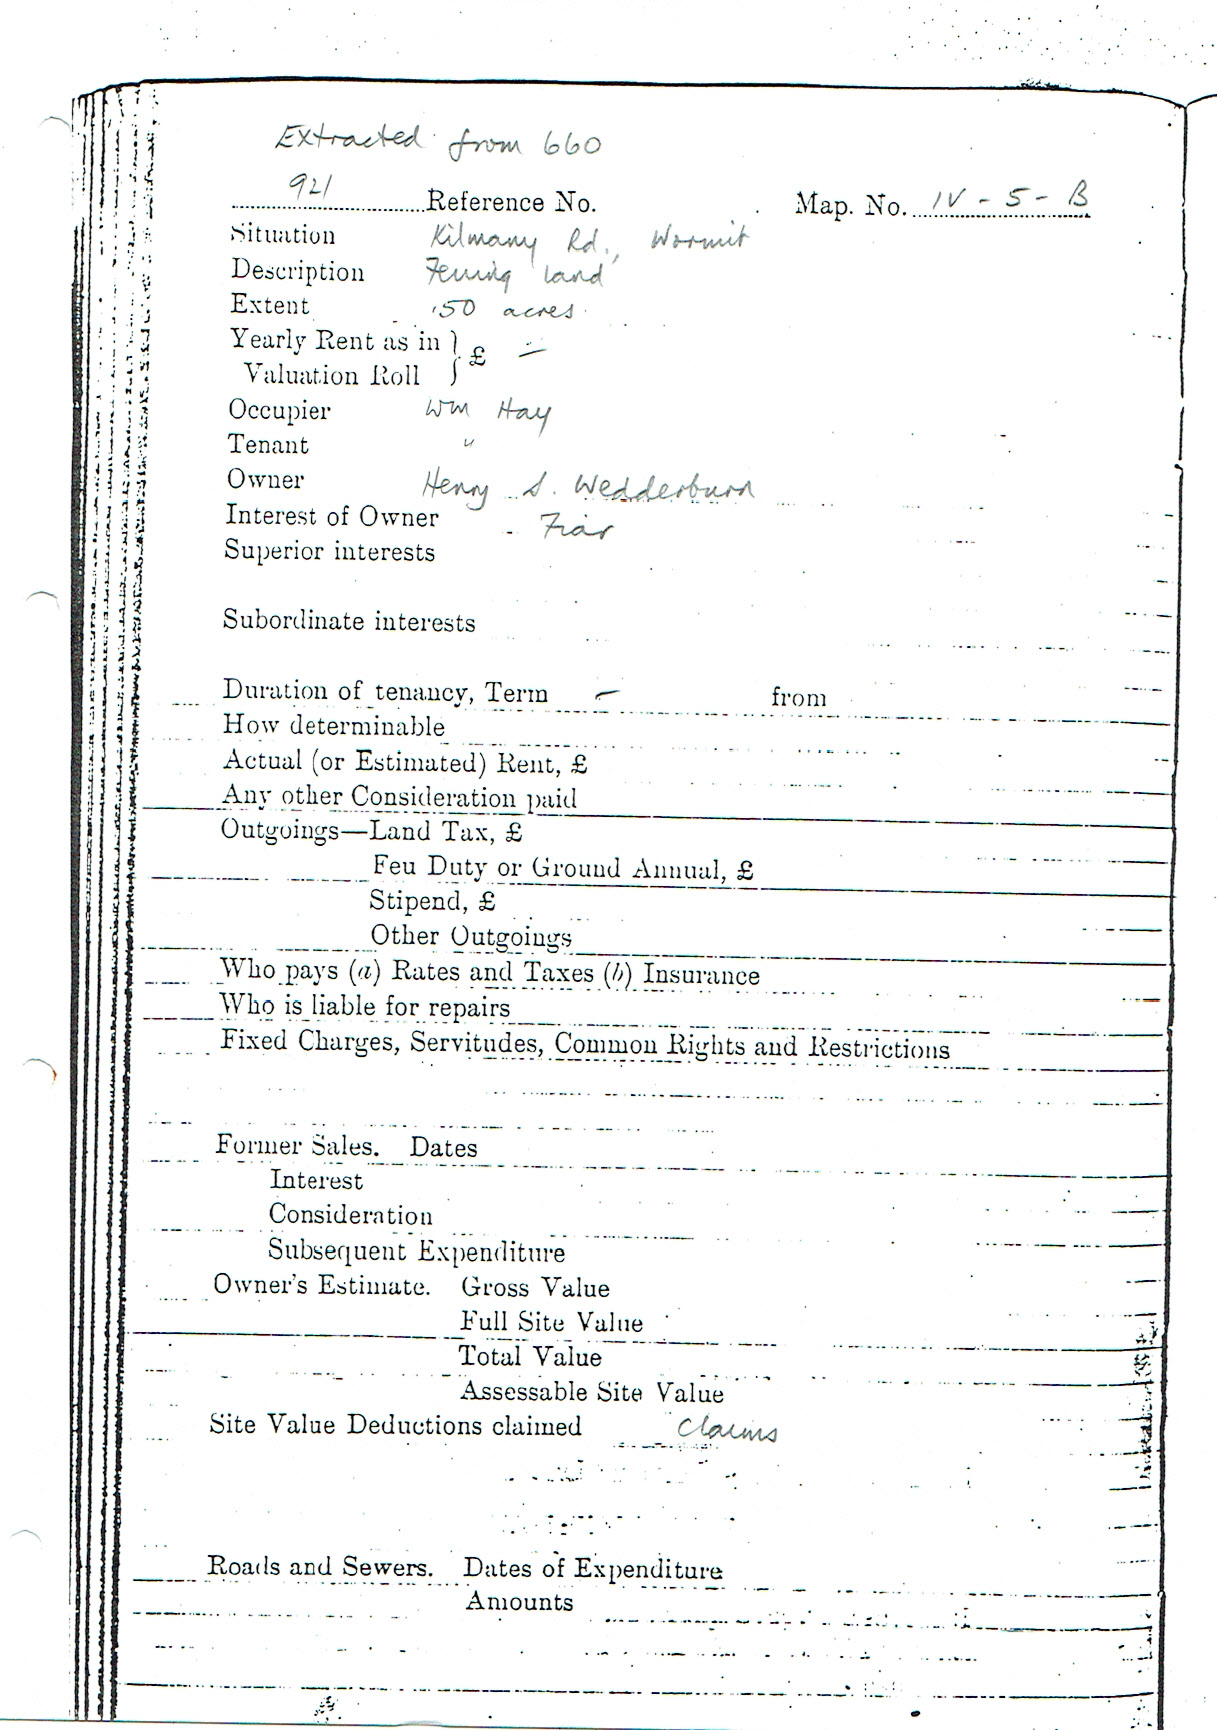 Extracted from 660
921 Reference No. Map. No. IV - 5 - B
Situation Kilmany Rd., Wormit
Description Feuing land
Extent .50 acres
Yearly Rent as in } £ —
Valuation Roll
Occupier Wm Hay
Tenant "
Owner Henry S. Wedderburn
Interest of Owner Fiar
Superior interests
Subordinate interests
Duration of tenancy, Term — from
How determinable
Actual (or Estimated) Rent, £
Any other Consideration paid
Outgoings—Land Tax, £
Feu Duty or Ground Annual, £
Stipend, £
Other Outgoings
Who pays (a) Rates and Taxes (b) Insurance
Who is liable for repairs
Fixed Charges, Servitudes, Common Rights and Restrictions
Former Sales. Dates
Interest
Consideration
Subsequent Expenditure
Owner's Estimate. Gross Value
Full Site Value
Total Value
Assessable Site Value
Site Value Deductions claimed Claims
Roads and Sewers. Dates of Expenditure
Amounts